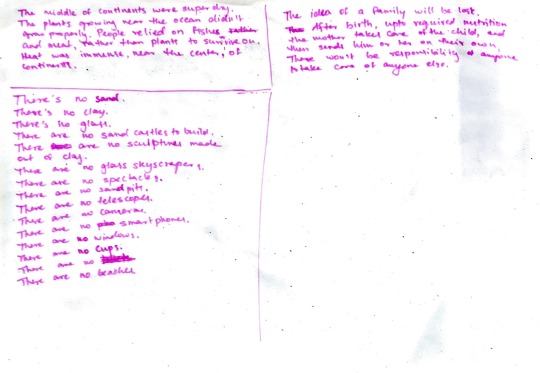 The middle of continants were super dry.
The plants growing near the ocean didn't
grow properly. People relied on fishes
and meat, rather than plants to survive on,
that was immense, near the center, of
continents.
There's no sand.
There's no clay.
There's no glass.
There are no sand castles to build.
There are no sculptures made
out of clay.
There are no glass skyscrapers.
There are no spectacles.
There are no sandpits.
There are no telescopes.
There are no cameras.
There are no smartphones.
There are no windows.
There are no cups.
There are no
There are no beaches
The idea of a family will be lost.
After birth, upto required nutrition
the mother takes care of the child, and
then sends him or her on their own.
There won't be responsibility anyone
to take care of anyone else.